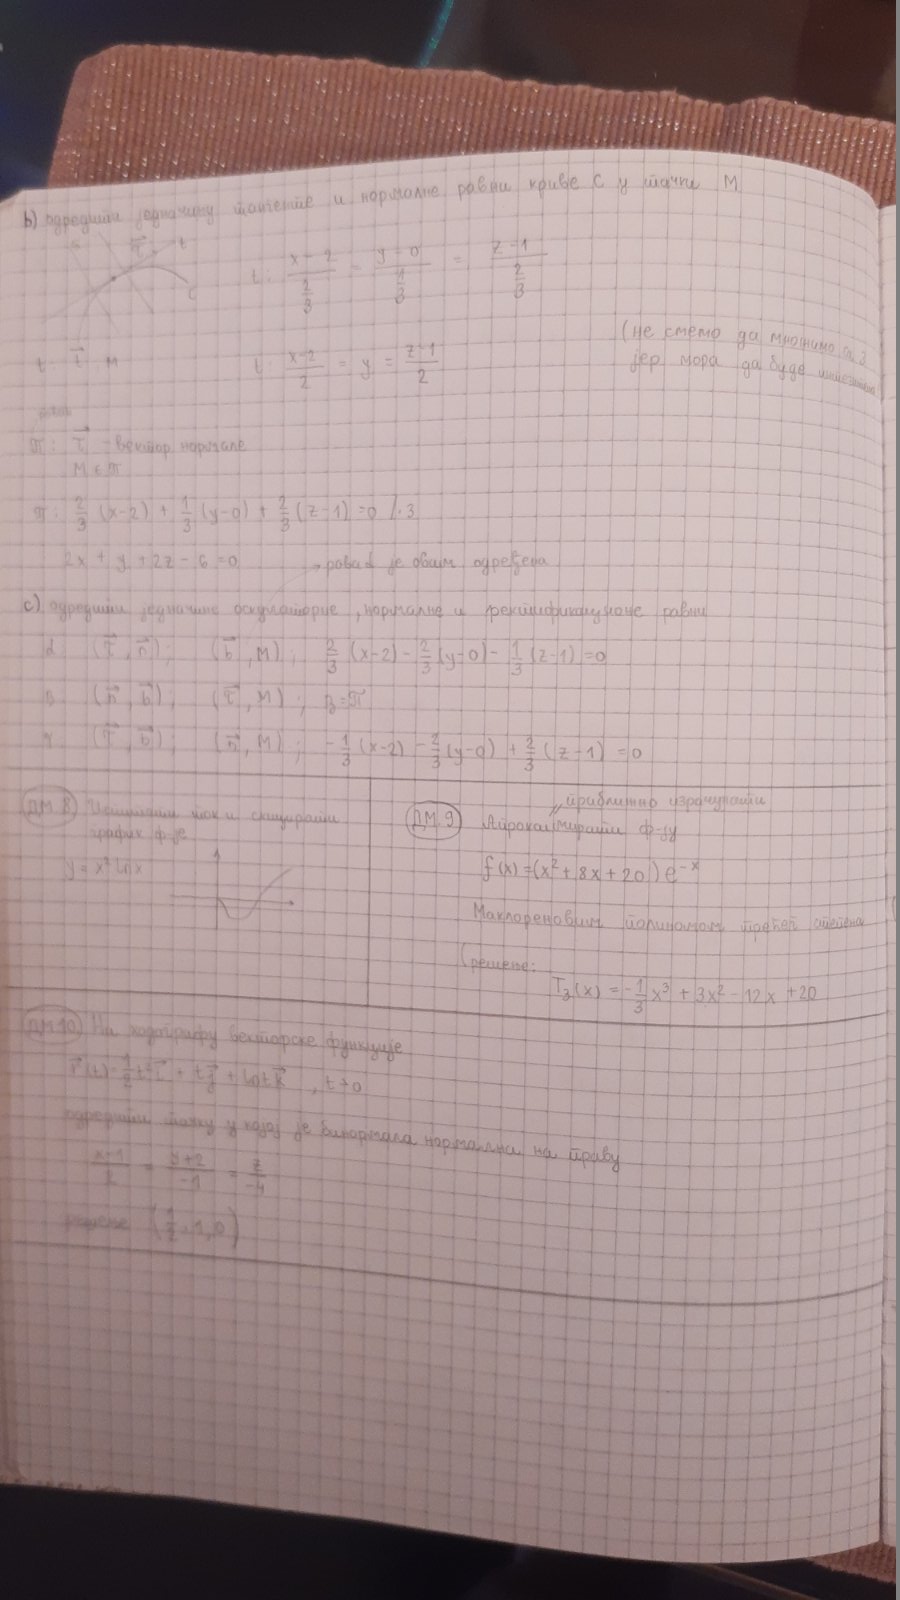 b) одредити једначину тангенте и нормалне равни криве C у тачки M
t: \frac{x-2}{\frac{2}{3}} = \frac{y-0}{\frac{1}{3}} = \frac{z-1}{\frac{2}{3}}
(не смемо да множимо са 3
t: \vec{τ}, M t: \frac{x-2}{2} = y = \frac{z-1}{2} јер мора да буде
π: \vec{τ} - вектор нормале
M ∈ π
π: \frac{2}{3}(x-2) + \frac{1}{3}(y-0) + \frac{2}{3}(z-1) = 0 /·3
2x + y + 2z - 6 = 0 → раван је овим одређена
c) одредити једначине оскулаторне, нормалне и ректификационе равни
α: (\vec{τ}, \vec{n}); (\vec{b}, M); \frac{2}{3}(x-2) - \frac{2}{3}(y-0) - \frac{1}{3}(z-1) = 0
β: (\vec{n}, \vec{b}); (\vec{τ}, M); β = π
γ: (\vec{τ}, \vec{b}); (\vec{n}, M); -\frac{1}{3}(x-2) - \frac{2}{3}(y-0) + \frac{2}{3}(z-1) = 0
ДМ.8 Испитати ток и скицирати
график ф-је
y = x² ln x
приближно израчунати
ДМ.9 Апроксимирати ф-ју
f(x) = (x² + 8x + 20) e^{-x}
Маклореновим полиномом трећег степена
(решење:
T₃(x) = -\frac{1}{3}x³ + 3x² - 12x + 20
ДМ.10 На ходографу векторске функције
\vec{r}(t) = \frac{1}{2}t²\vec{i} + t\vec{j} + ln t \vec{k}, t>0
одредити тачку у којој је бинормала нормална на праву
\frac{x-1}{} = \frac{y+2}{-1} = \frac{z}{-4}
решење (\frac{1}{2}, 1, 0)